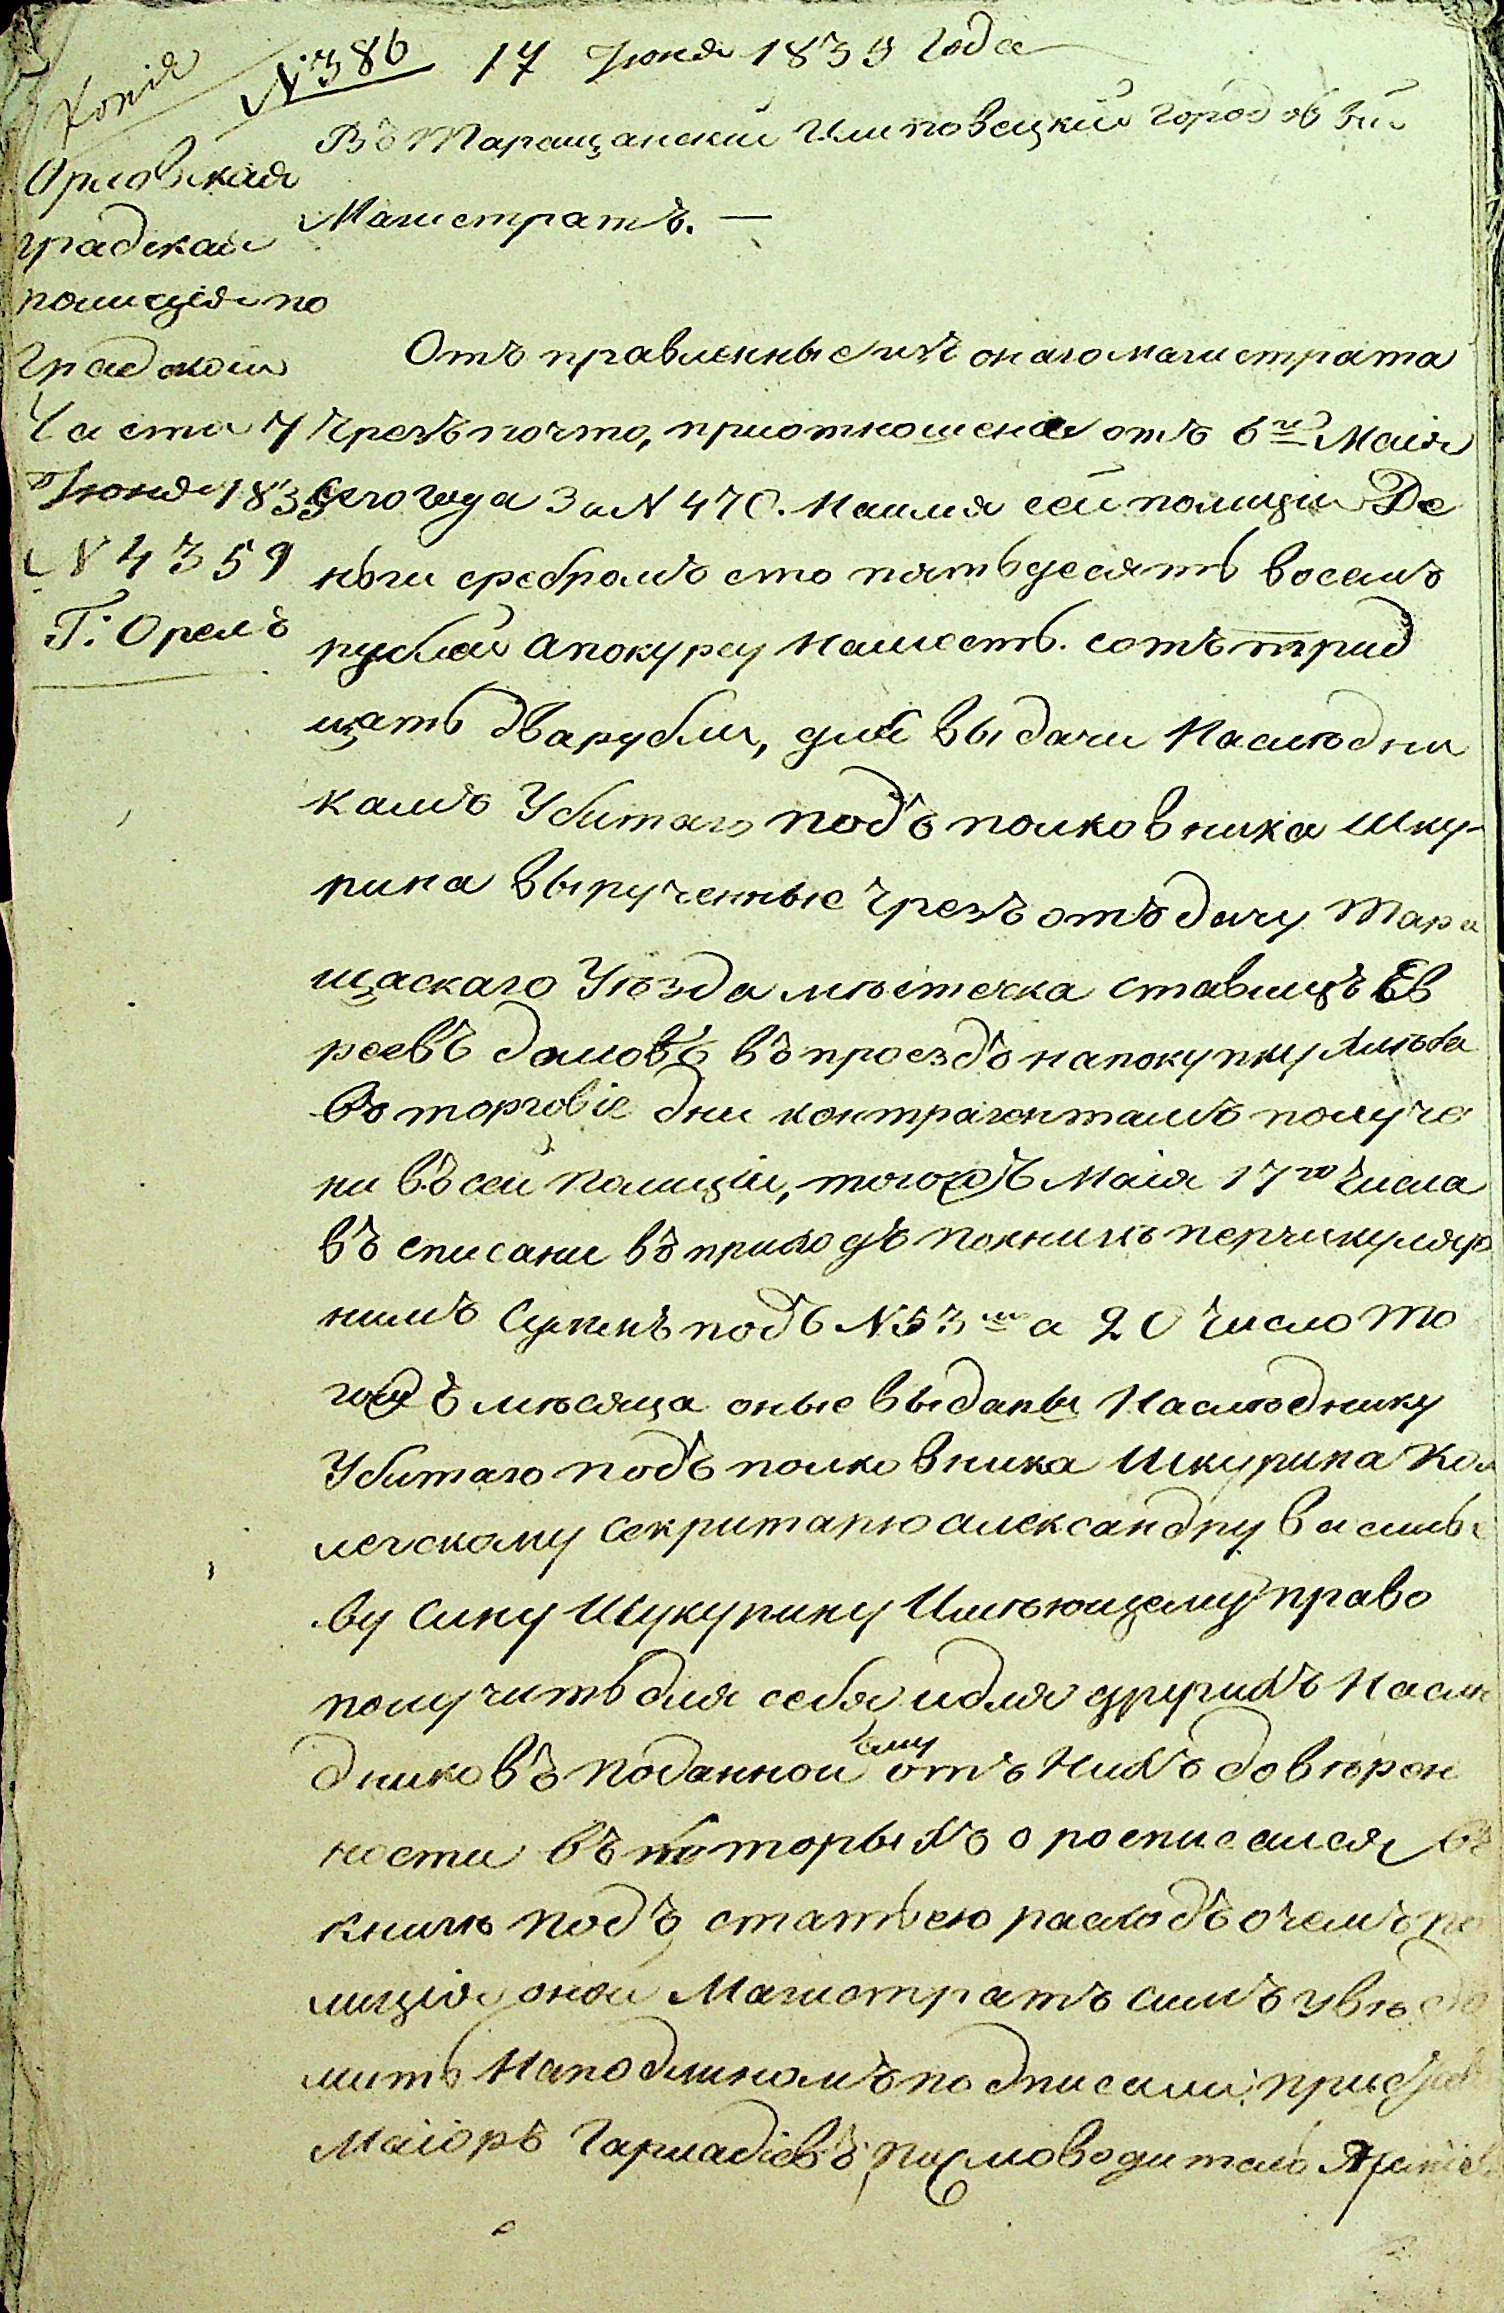 Копія
№386 17 Іюня 1835 года
Орловская
градская
полиція по
градской
Части 7
Іюня 1835
№ 4359
Г: Орелъ
Въ Таращанский Илиповецкий городовый
Магистратъ. —
Отъ правленные изъ онаго магистрата
чрезъ почто, приотношение отъ 6го Маія
сего года За N 470. На имя сей полиции Де
ньги сребромъ сто пятьдесятъ восемь
рублей апокурсу На шесть. сотъ трид
цать два рубли, для выдачи Наследни
камъ Убитаго подъ полковника Шку-
рина вырученные чрезъ отъдачу Тара
щаскаго Уезда местечка ставищъ Ев
реевъ домовъ въ проездъ напокупку хлеба
во торговіе дни контрагентамъ получе
ни въ сей Полиции, тогожъ Маія 17го числа
въ списани въ приходъ покниге перчикуляр
нимъ Сумъ подъ N53м а 20 число то
гожъ месяца оные выданы Наследнику
Убитаго подъ полковника Шкурина Кол
легскому секритарю александру василье
ву сину Шукурину Имеющему право
получить для себя и для другихъ Насле
дниковъ поданной ему отъ Нихъ доверен
ности въ которыхъ о росписался въ
книге подъ статьею расходъ о чемъ по
лиція оной Магистратъ симъ уведо
мить На подлиномъ подписали; приставъ
Маіоръ Гарнадіевъ, писмоводитель